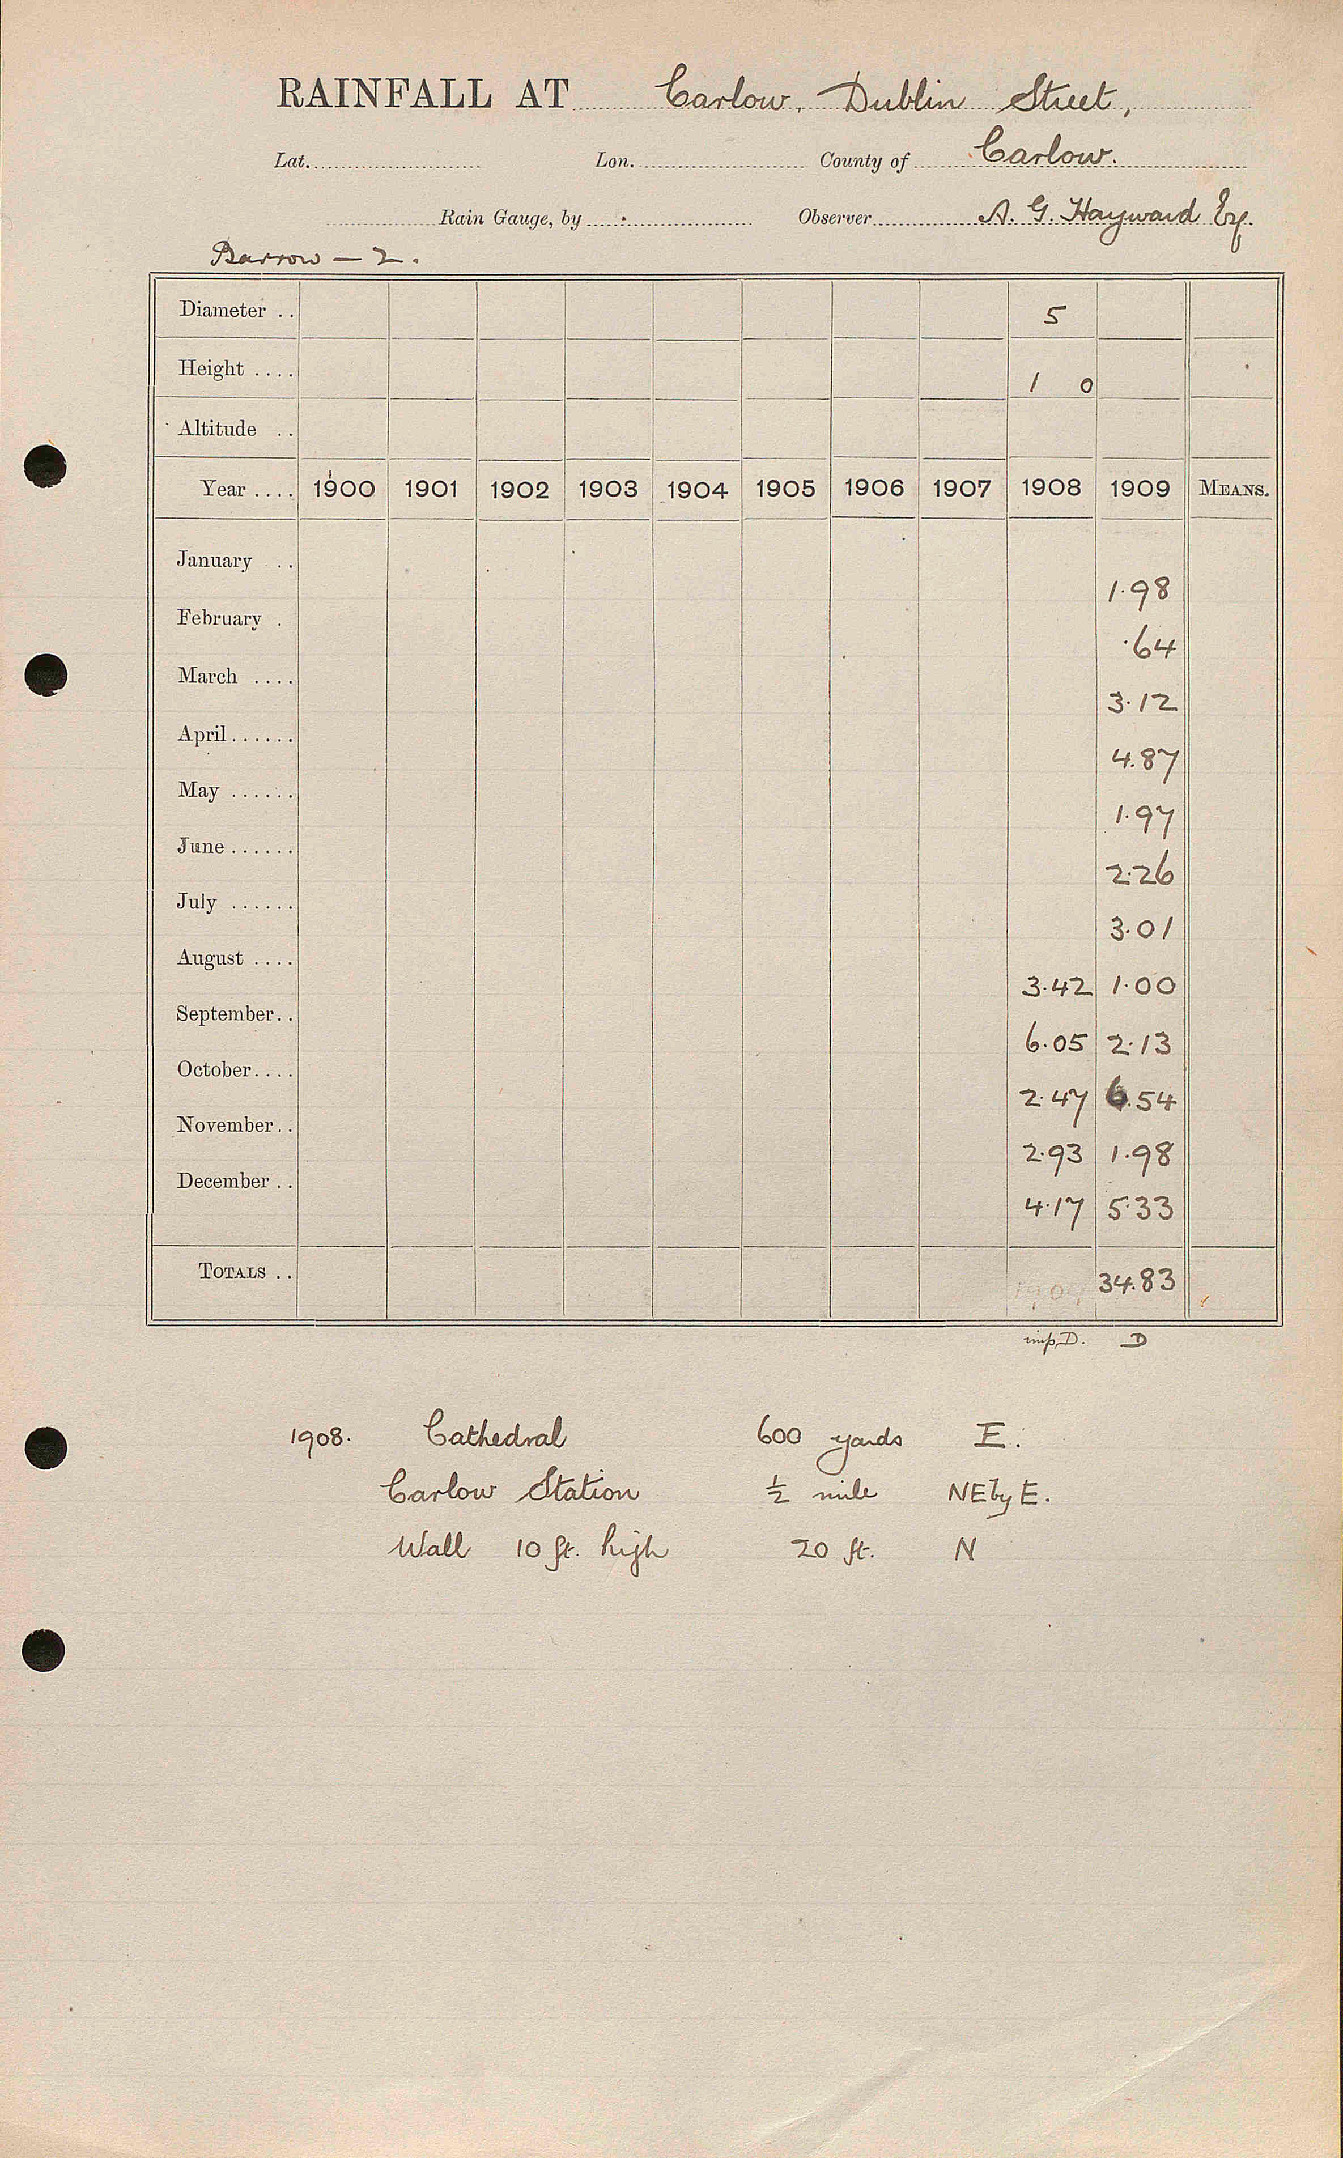 RAINFALL AT Carlow, Dublin Street,
Lat. Lon. County of Carlow.
Rain Gauge, by Observer A. G. Hayward Esq.
Barrow — 2.
Diameter .. 5
Height .... 1 0
Altitude ..
Year .... 1900 1901 1902 1903 1904 1905 1906 1907 1908 1909 MEANS.
January .. 1.98
February . .64
March .... 3.12
April ...... 4.87
May ...... 1.97
June ...... 2.26
July ...... 3.01
August .... 3.42 1.00
September.. 6.05 2.13
October.... 2.47 6.54
November.. 2.93 1.98
December .. 4.17 5.33
TOTALS .. 34.83
imp. D. D
1908. Cathedral 600 yards E.
Carlow Station ½ mile NE by E.
Wall 10 ft. high 20 ft. N